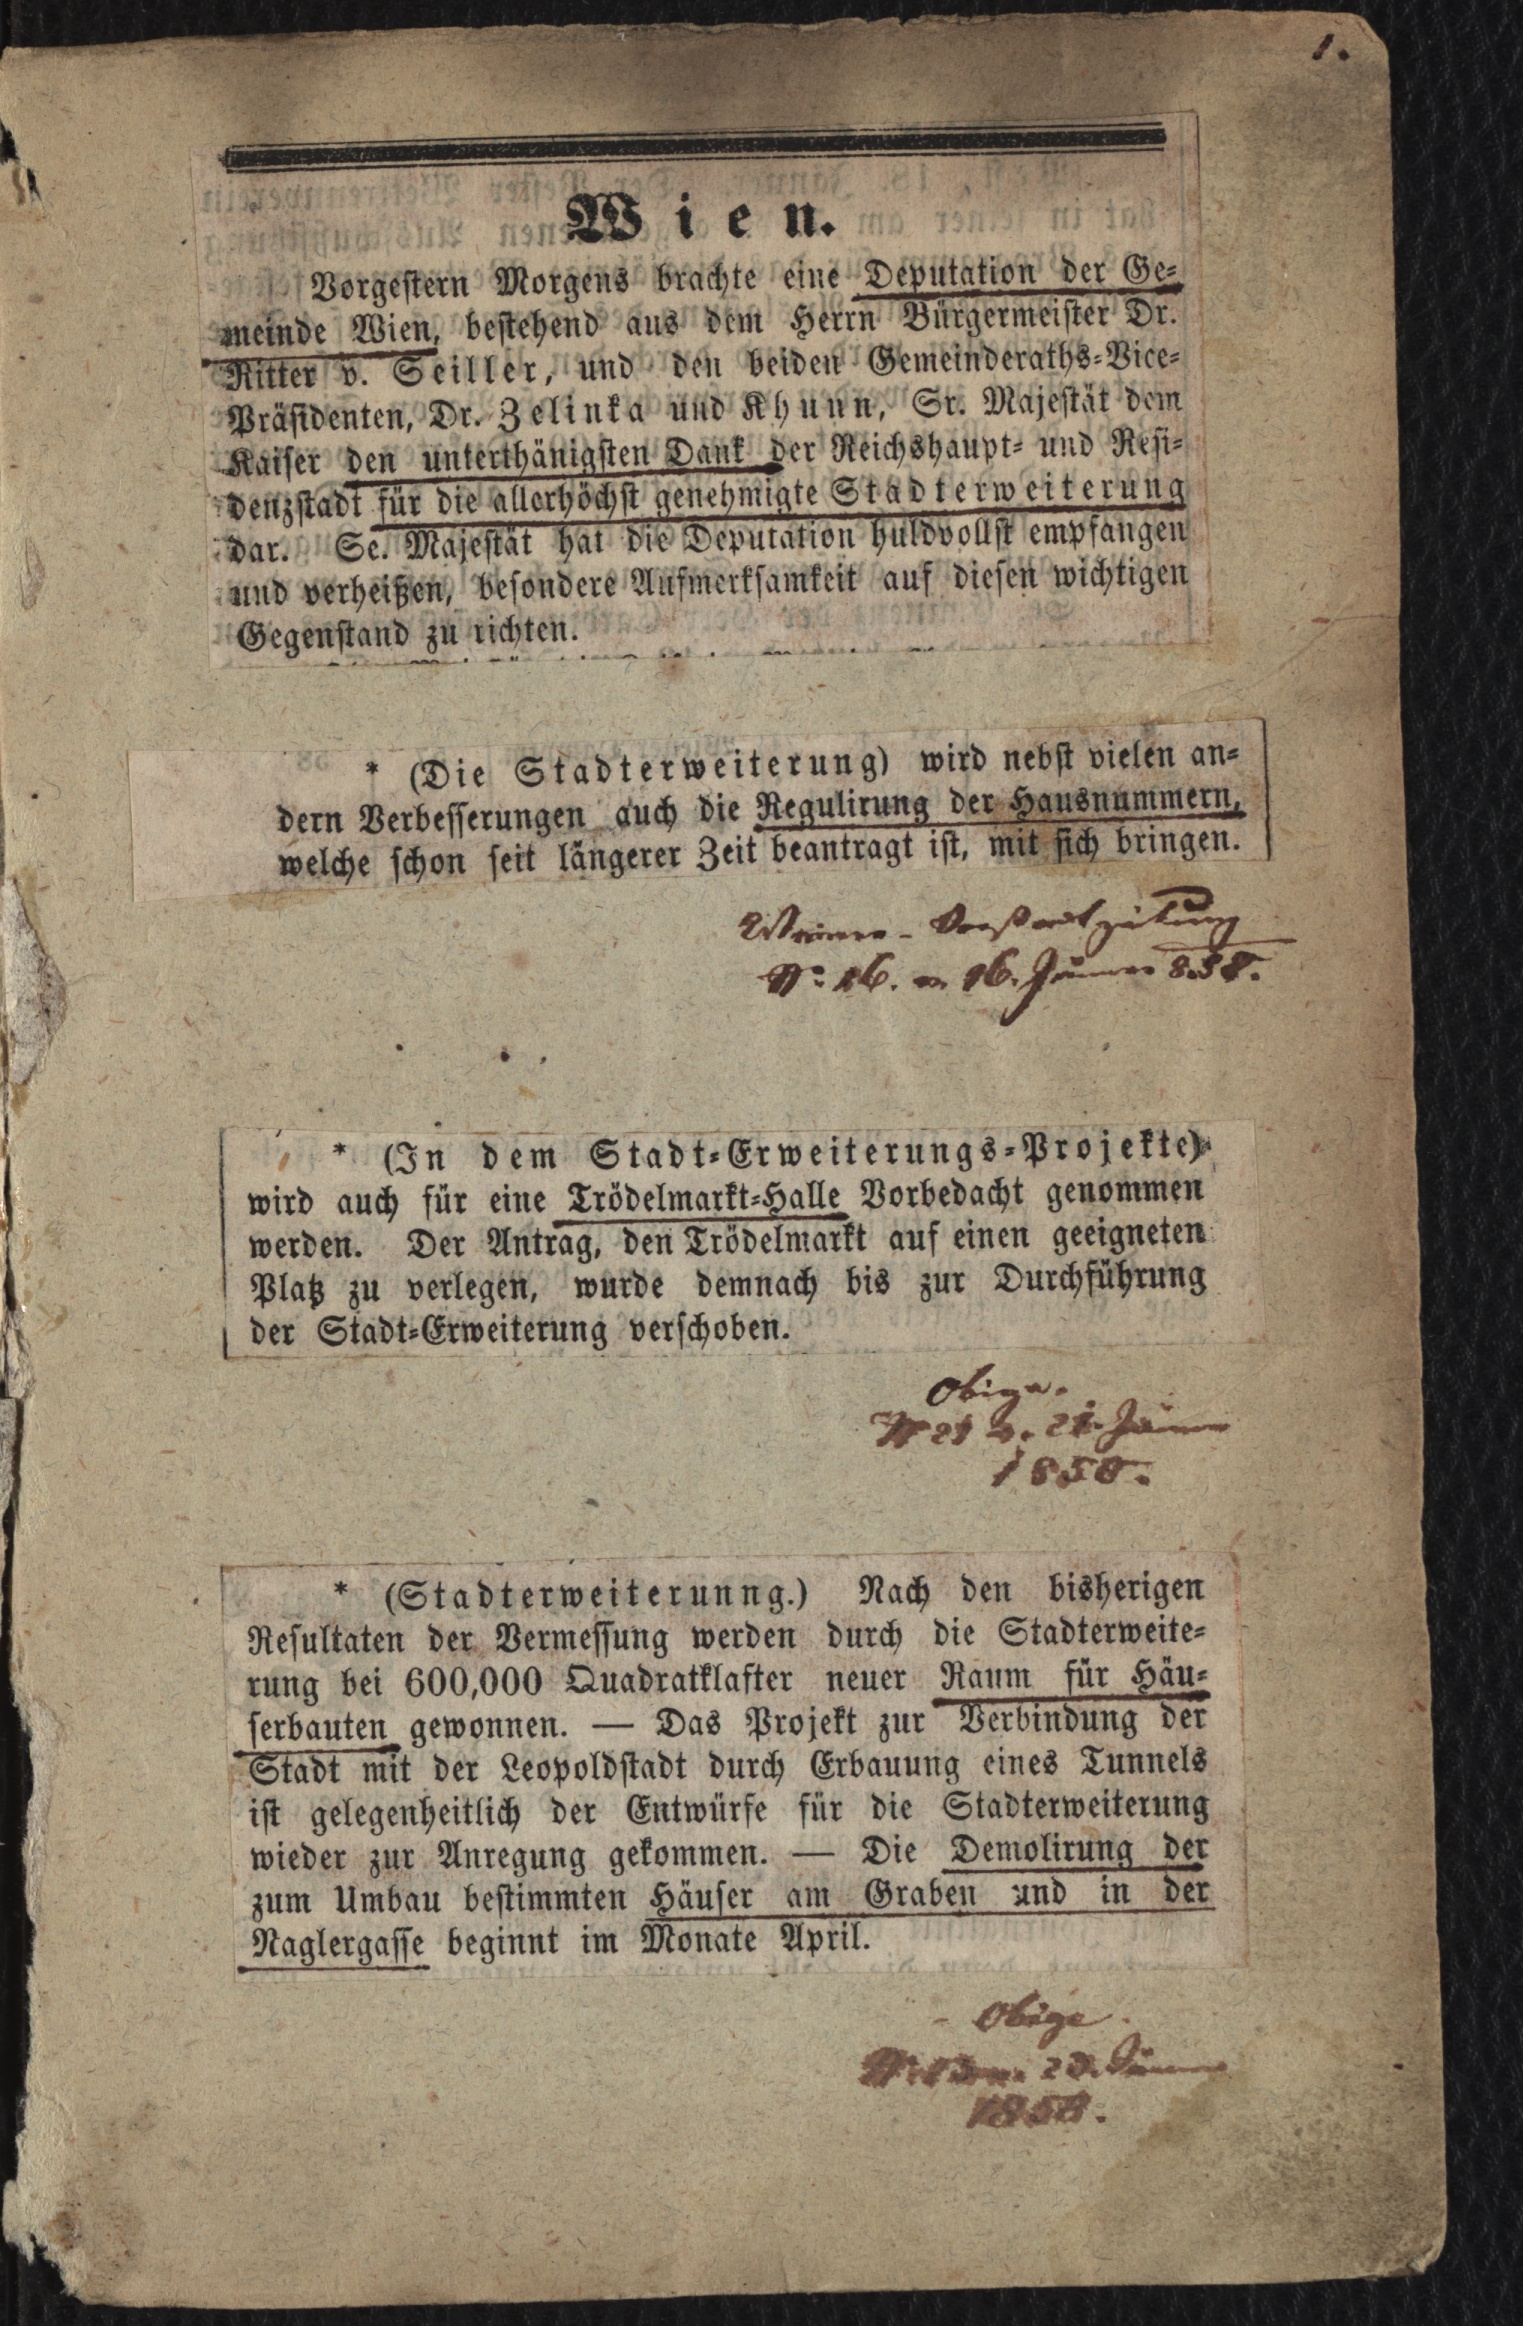 1.
Wien.
Vorgestern Morgens brachte eine Deputation der Ge-
meinde Wien, bestehend aus dem Herrn Bürgermeister Dr.
Ritter v. Seiller, und den beiden Gemeinderaths-Vice-
Präsidenten, Dr. Zelinka und Khunn, Sr. Majestät dem
Kaiser den unterthänigsten Dank der Reichshaupt- und Resi-
denzstadt für die allerhöchst genehmigte Stadterweiterung
dar. Se. Majestät hat die Deputation huldvollst empfangen
und verheißen, besondere Aufmerksamkeit auf diesen wichtigen
Gegenstand zu richten.
* (Die Stadterweiterung) wird nebst vielen an-
dern Verbesserungen auch die Regulirung der Hausnummern,
welche schon seit längerer Zeit beantragt ist, mit sich bringen.
Wiener-Vorstadtzeitung
No. 16. v. 16. Jänner 858.
* (In dem Stadt-Erweiterungs-Projekte)
wird auch für eine Trödelmarkt-Halle Vorbedacht genommen
werden. Der Antrag, den Trödelmarkt auf einen geeigneten
Platz zu verlegen, wurde demnach bis zur Durchführung
der Stadt-Erweiterung verschoben.
Obige.
No 21 v. 21. Jänner
1858.
* (Stadterweiterunng.) Nach den bisherigen
Resultaten der Vermessung werden durch die Stadterweite-
rung bei 600,000 Quadratklafter neuer Raum für Häu-
serbauten gewonnen. — Das Projekt zur Verbindung der
Stadt mit der Leopoldstadt durch Erbauung eines Tunnels
ist gelegenheitlich der Entwürfe für die Stadterweiterung
wieder zur Anregung gekommen. — Die Demolirung der
zum Umbau bestimmten Häuser am Graben und in der
Naglergasse beginnt im Monate April.
Obige.
v. 23. Jänner
1858.